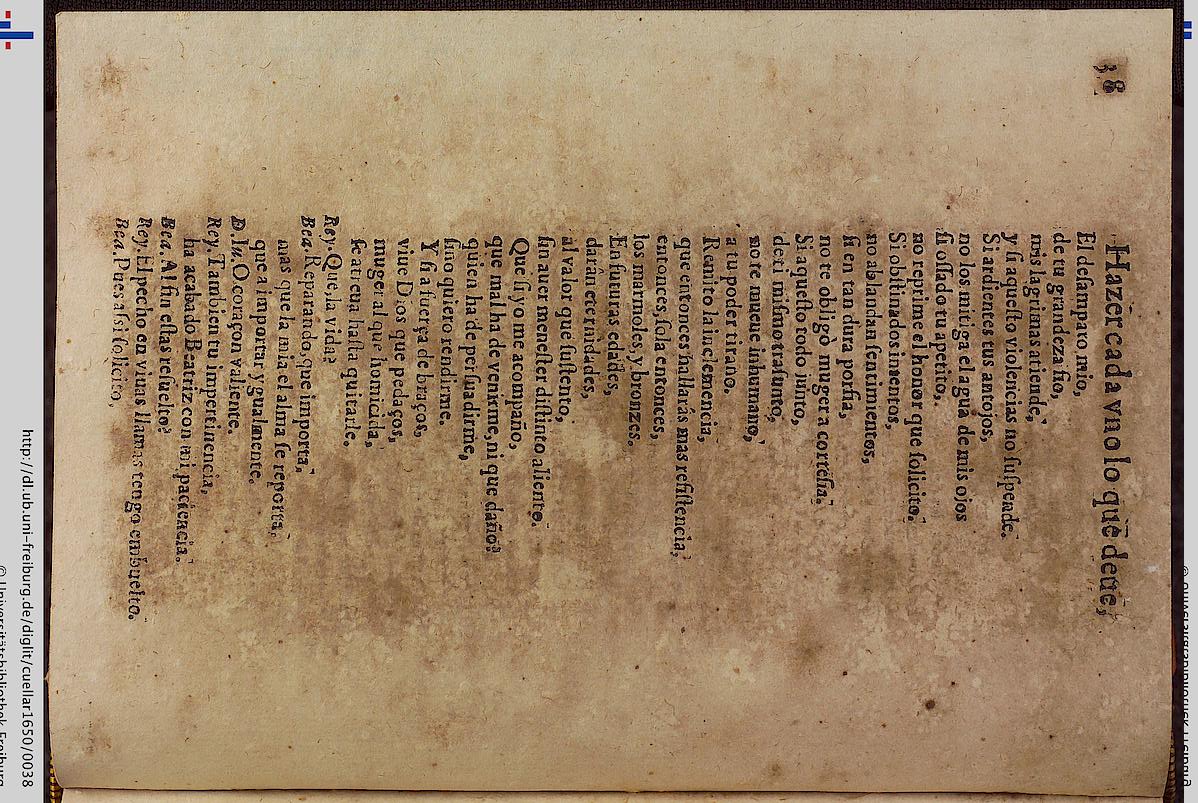 38
Hazer cada vno lo que deue,
El desamparo mio,
de tu grandeza fio,
mis lagrimas atiende,
y si aquesto violencias no suspende.
Si ardientes tus antojos,
no los mitiga el agua de mis ojos
si ossado tu apetito,
no reprime el honor que solicito.
Si obstinados intentos,
no ablandan sentimientos,
si en tan dura porfia,
no te obligò muger a cortesia.
Si aquesto todo junto,
de ti mismo trasunto,
no te mueue inhumano,
a tu poder tirano.
Remito la inclemencia,
que entonces hallarás mas resistencia,
entonces, solo entonces,
los marmoles, y bronzes.
En futuras edades,
daràn eternidades,
al valor que sustento,
sin auer menester distinto aliento.
Que si yo me acompaño,
que mal ha de venirme, ni que daño?
quien ha de persuadirme,
sino quiero rendirme.
Y si a fuerça de braços,
viue Dios que pedaços,
muger al que homicida,
se atreua hasta quitarle,
Rey. Que la vida?
Bea. Reparando, que importa,
mas que la mia el alma se reporta,
que a importar ygualmente.
D. Iu. O coraçon valiente.
Rey. Tambien tu impertinencia,
ha acabado Beatriz con mi paciencia.
Bea. Al fin estas resuelto?
Rey. El pecho en viuas llamas tengo embuelto.
Bea. Pues assi solicito,
http://dl.ub.uni-freiburg.de/diglit/cuellar1650/0038
© Universitätsbibliothek Freiburg